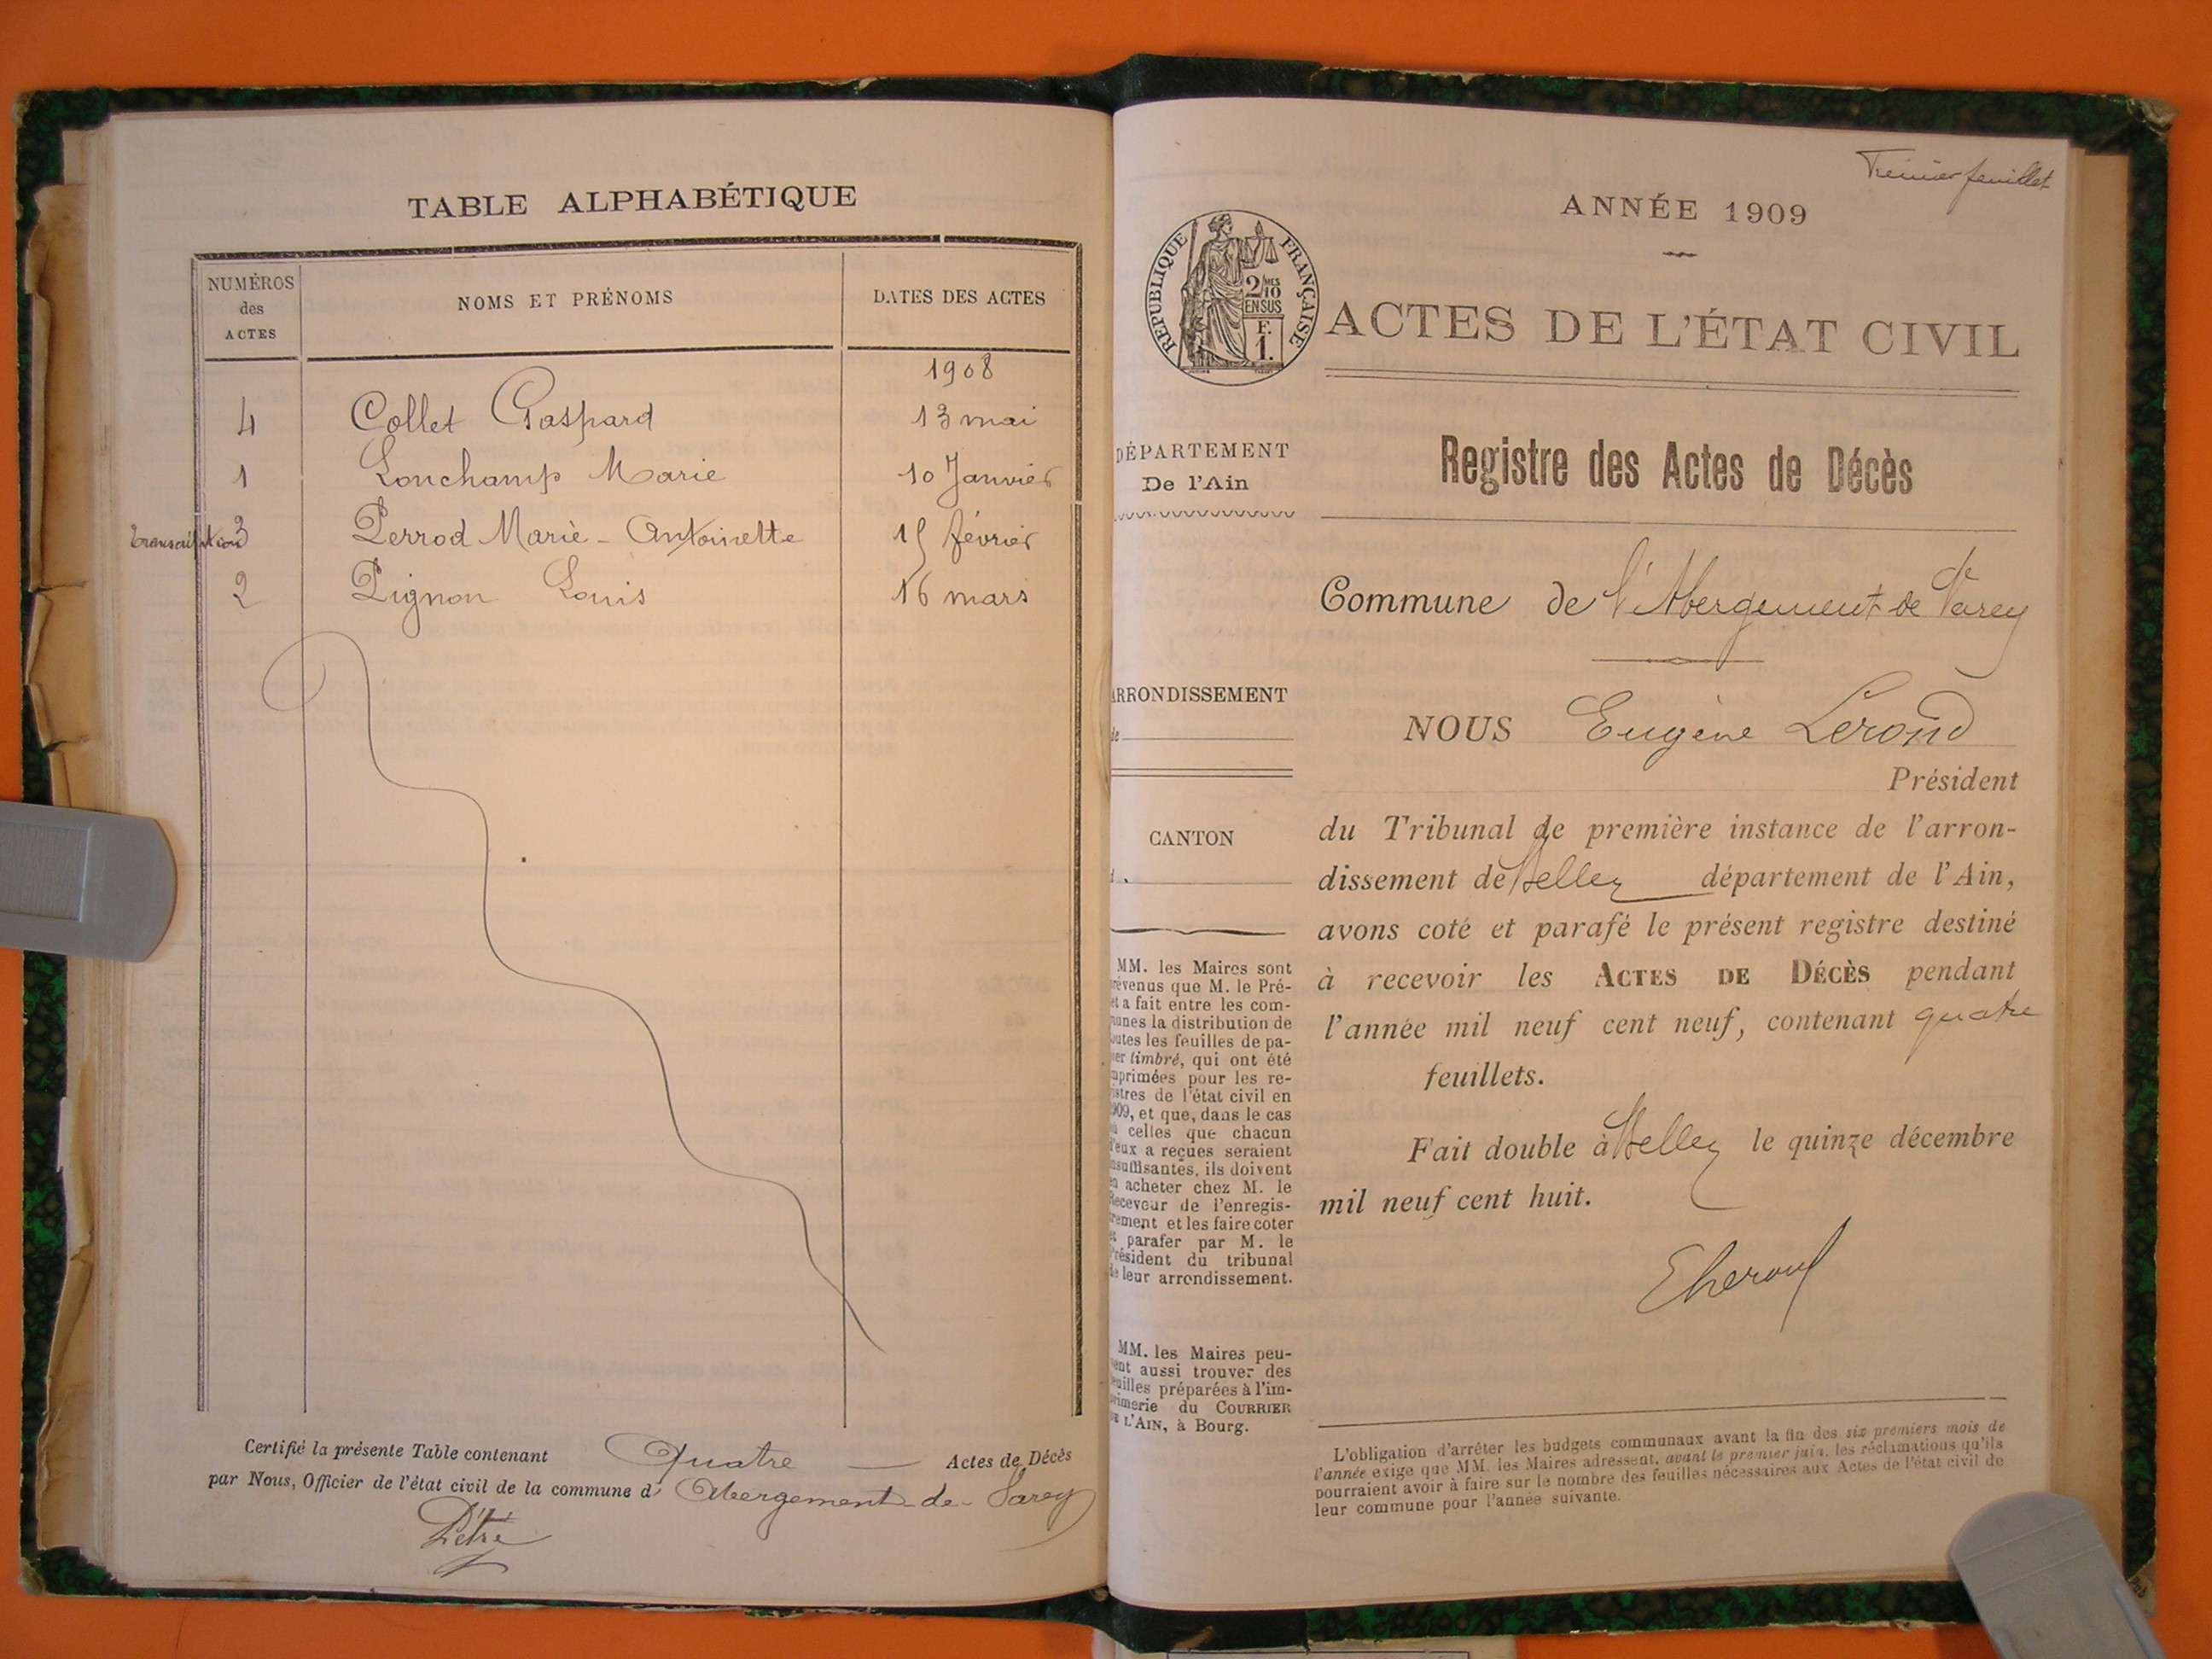 TABLE ALPHABÉTIQUE
NUMÉROS
des
ACTES
NOMS ET PRÉNOMS
DATES DES ACTES
1908
4 Collet Gaspard 13 mai
1 Lonchamp Marie 10 Janvier
transcription 3 Perrod Marie-Antoinette 15 février
2 Pignon Louis 16 mars
Certifié la présente Table contenant Quatre Actes de Décès
par Nous, Officier de l'état civil de la commune d' Abergement-de-Varey
Premier feuillet
ANNÉE 1909
RÉPUBLIQUE FRANÇAISE
2/10MES
EN SUS
F.
1.
ACTES DE L'ÉTAT CIVIL
DÉPARTEMENT
De l'Ain
ARRONDISSEMENT
de
CANTON
d
MM. les Maires sont
prévenus que M. le Pré-
fet a fait entre les com-
munes la distribution de
toutes les feuilles de pa-
pier timbré, qui ont été
imprimées pour les re-
gistres de l'état civil en
1909, et que, dans le cas
où celles que chacun
d'eux a reçues seraient
insuffisantes, ils doivent
en acheter chez M. le
Receveur de l'enregis-
trement et les faire coter
et parafer par M. le
Président du tribunal
de leur arrondissement.
MM. les Maires peu-
vent aussi trouver des
feuilles préparées à l'im-
primerie du COURRIER
DE L'AIN, à Bourg.
Registre des Actes de Décès
Commune de l'Abergement de Varey
NOUS Eugène Lerond
Président
du Tribunal de première instance de l'arron-
dissement de Belley département de l'Ain,
avons coté et parafé le présent registre destiné
à recevoir les ACTES DE DÉCÈS pendant
l'année mil neuf cent neuf, contenant quatre
feuillets.
Fait double à Belley le quinze décembre
mil neuf cent huit.
ELerond
L'obligation d'arrêter les budgets communaux avant la fin des six premiers mois de
l'année exige que MM. les Maires adressent, avant le premier juin, les réclamations qu'ils
pourraient avoir à faire sur le nombre des feuilles nécessaires aux Actes de l'état civil de
leur commune pour l'année suivante.